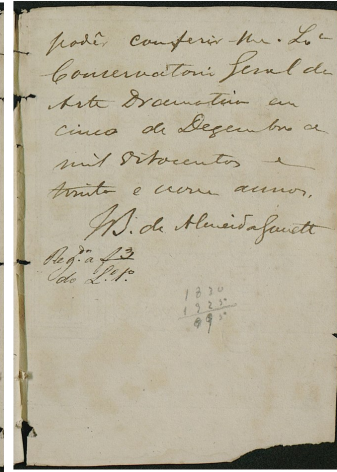 podêr conferir-lhe. Lx.ª
Conservatorio Geral da
Arte Dramatica em
cinco de Dezembro de
mil oitocentos e
trinta e nove annos.
JB. de Almeida Garrett
Reg.da a f 3
do L.º 1º
1830